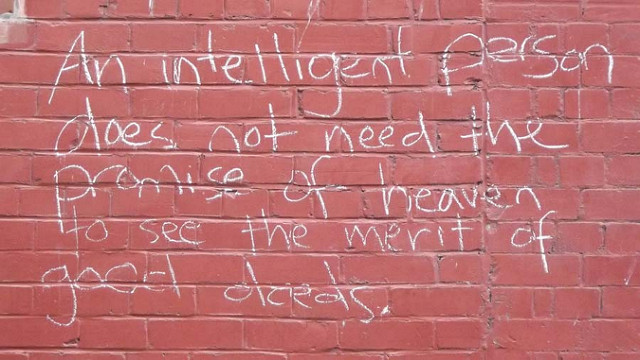 An intelligent person
does not need the
promise of heaven
to see the merit of
good deeds.